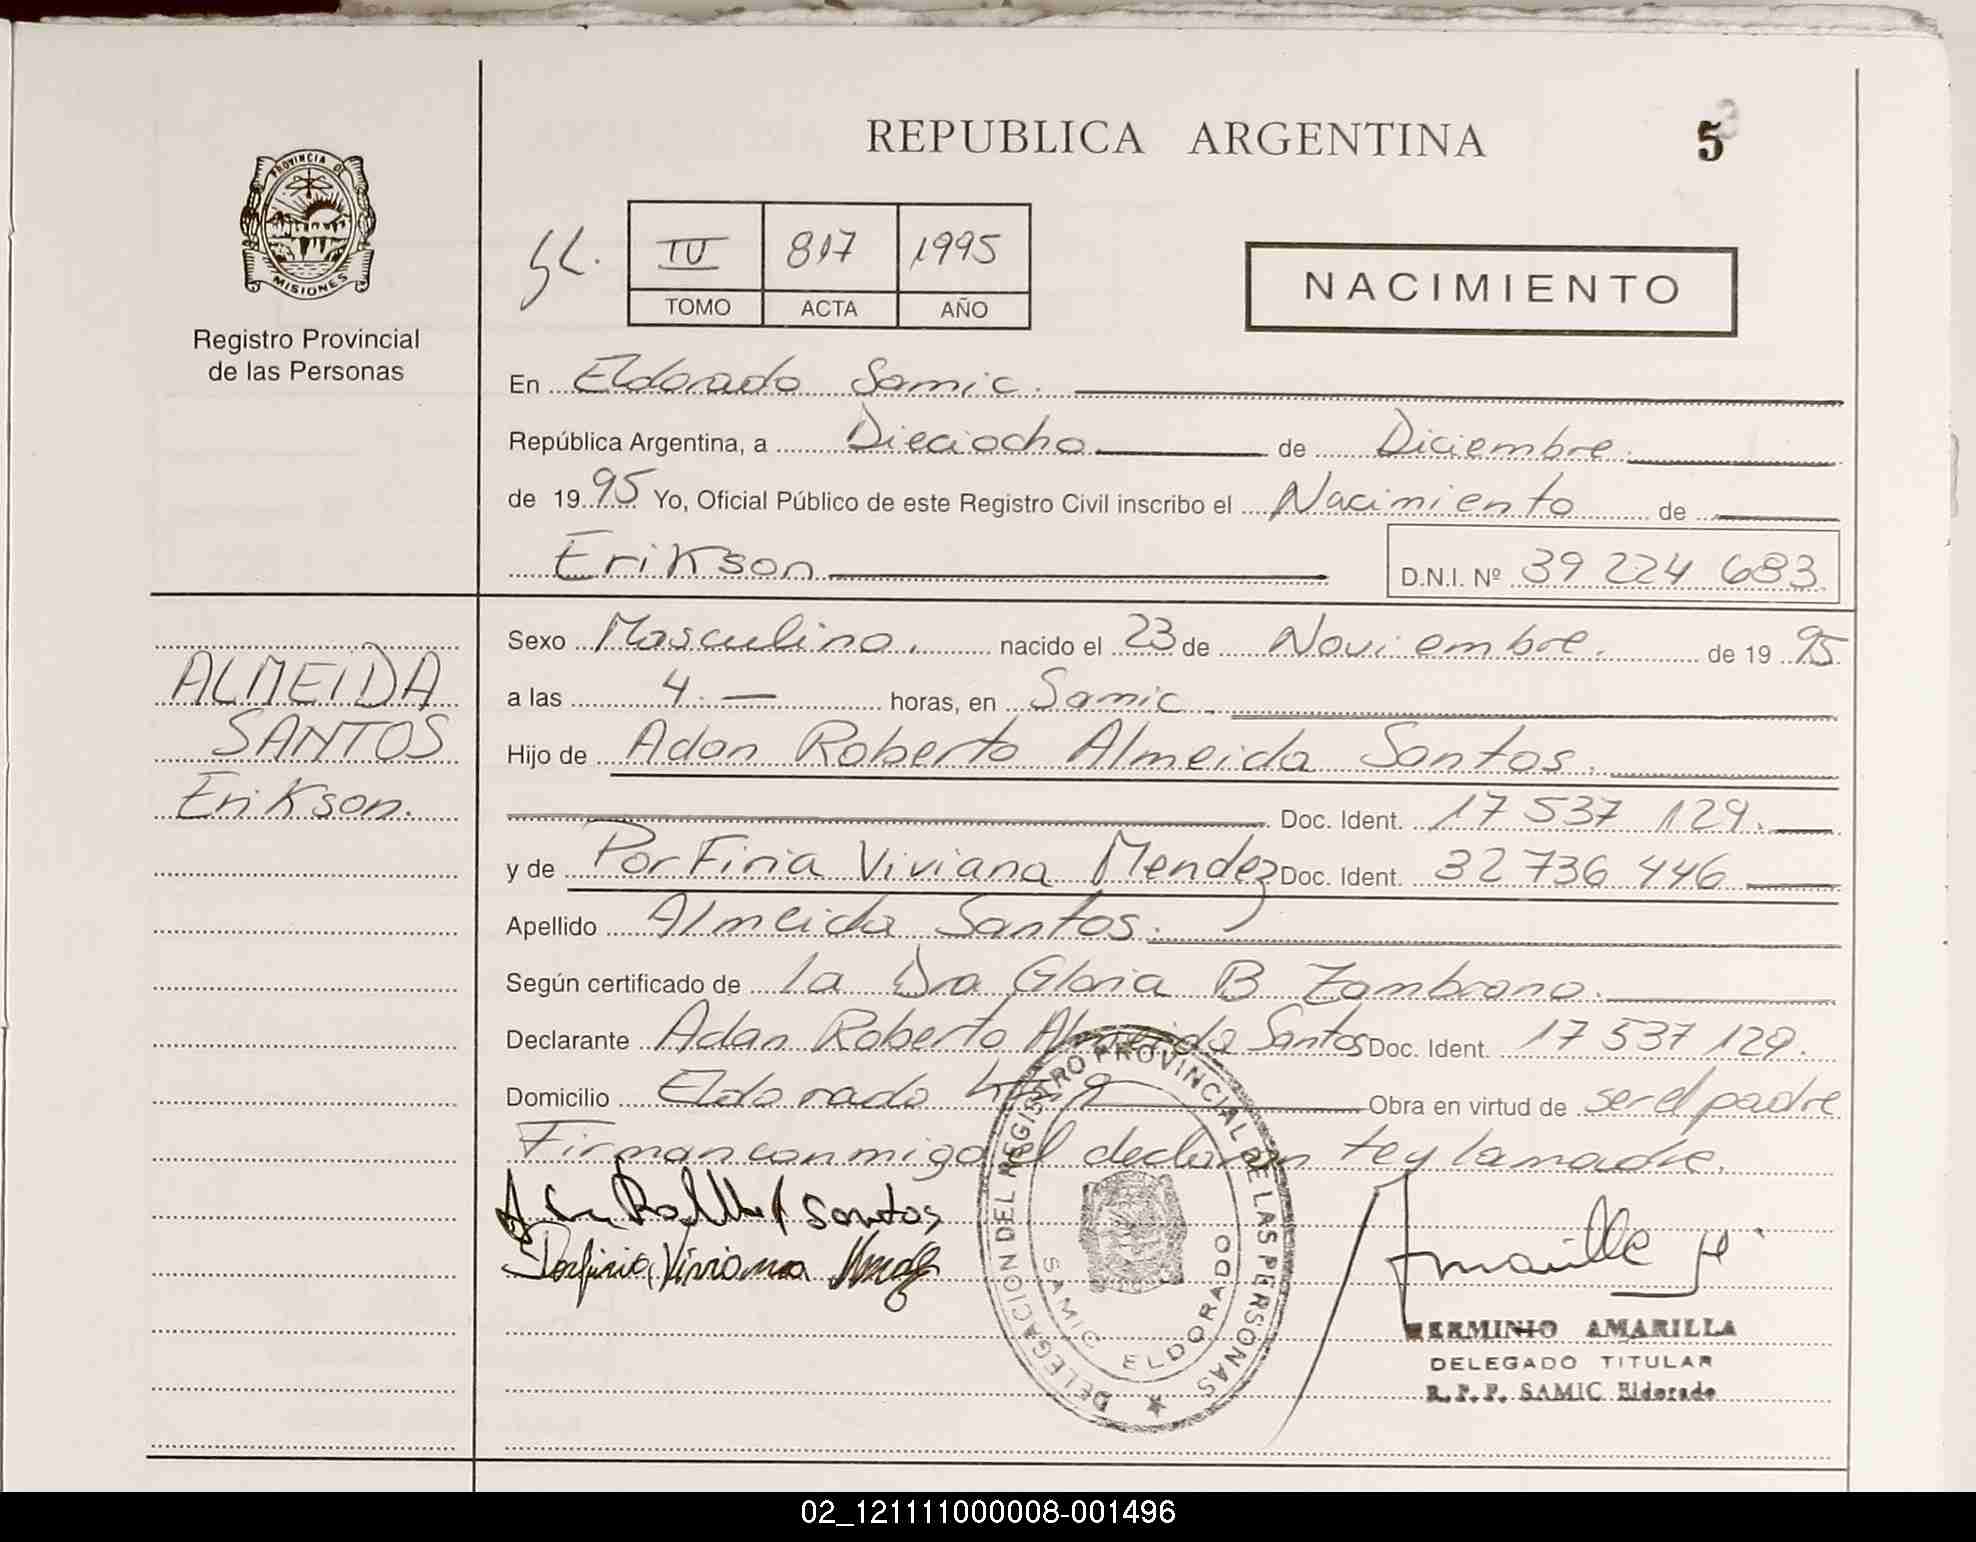 REPUBLICA ARGENTINA
5
PROVINCIA DE
MISIONES
Registro Provincial
de las Personas
IV 817 1995
TOMO ACTA AÑO
NACIMIENTO
En Eldorado Samic.
República Argentina, a Dieciocho de Diciembre
de 1995 Yo, Oficial Público de este Registro Civil inscribo el Nacimiento de
Erikson D.N.I. Nº 39 224 683
Sexo Masculino. nacido el 23 de Noviembre. de 1995
a las 4.— horas, en Samic.
Hijo de Adan Roberto Almeida Santos.
Doc. Ident. 17 537 129.
y de PorFiria Viviana Mendez Doc. Ident. 32 736 446
Apellido Almeida Santos.
Según certificado de la Dra Gloria B Zambrano.
Declarante Adan Roberto Almeida Santos Doc. Ident. 17 537 129.
Domicilio Eldorado Obra en virtud de ser el padre
Firman conmigo el declarante y la madre.
ALMEIDA
SANTOS
Erikson.
Santos
Porfiria Viviana
DELEGACION DEL REGISTRO PROVINCIAL DE LAS PERSONAS
SAMIC ELDORADO
HERMINIO AMARILLA
DELEGADO TITULAR
R.P.P. SAMIC Eldorado
02_121111000008-001496